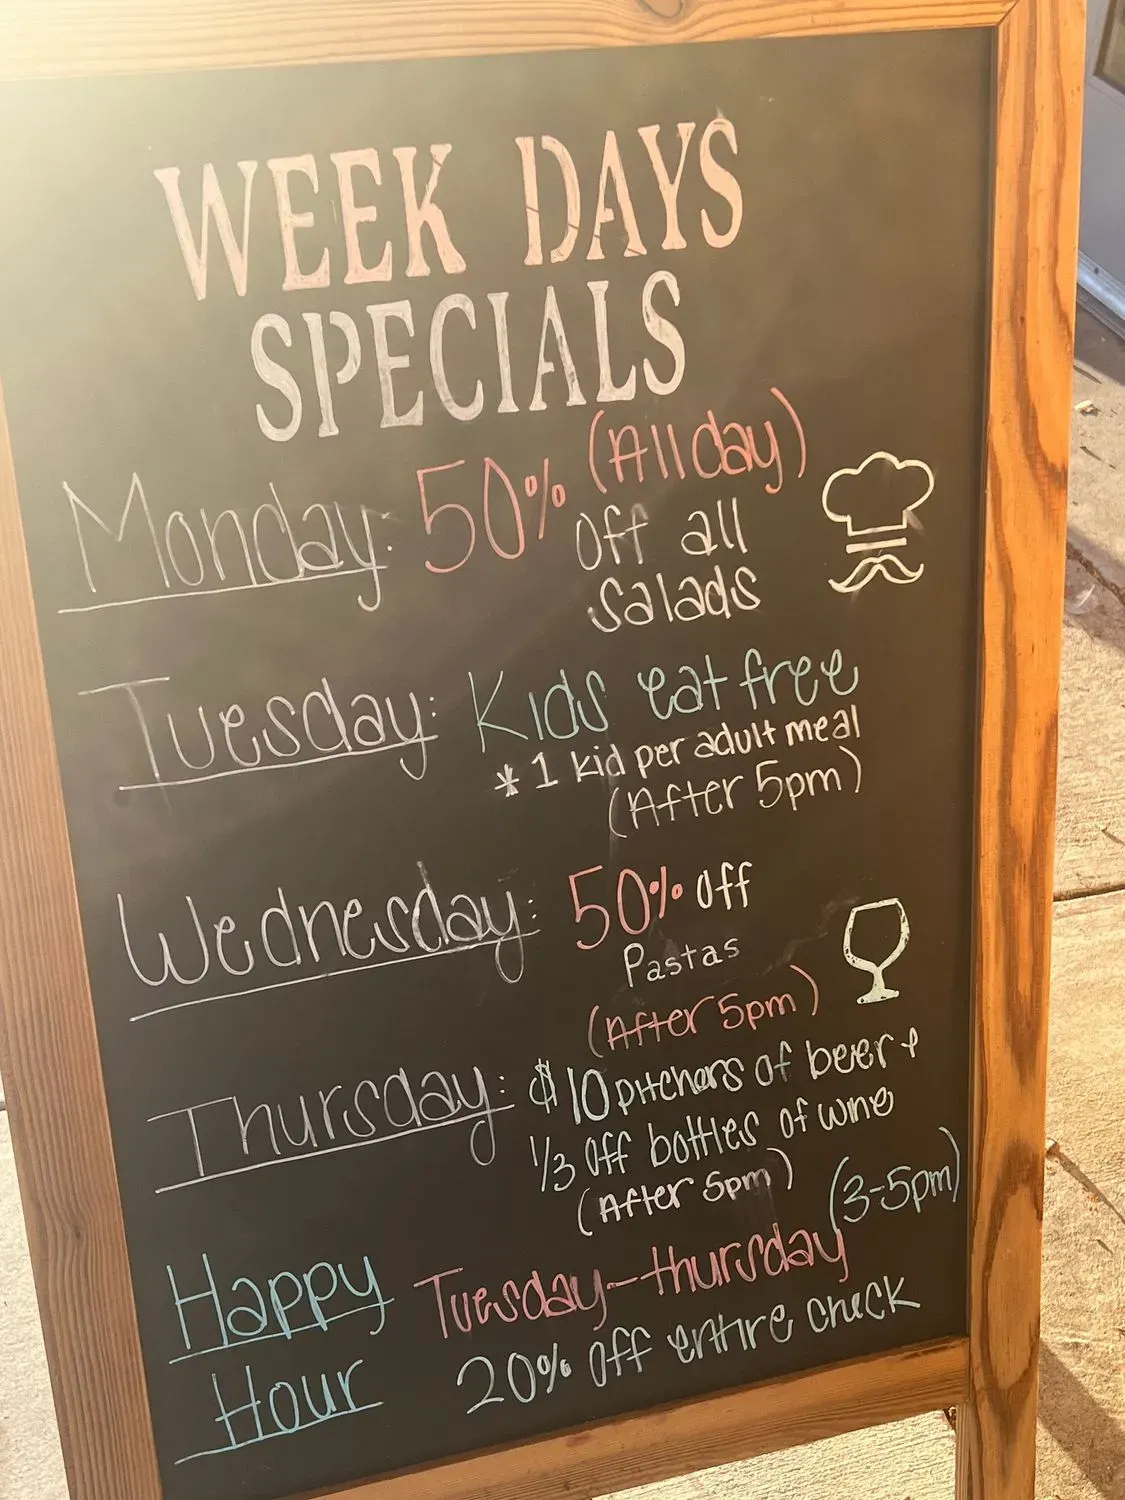 WEEK DAYS
SPECIALS
Monday: 50% (All day)
off all
salads
Tuesday: Kids eat free
* 1 kid per adult meal
(After 5pm)
Wednesday: 50% off
Pastas
(After 5pm)
Thursday: $10 pitchers of beer +
1/3 off bottles of wine
(After 5pm)
Happy Tuesday-thursday (3-5pm)
Hour 20% off entire check